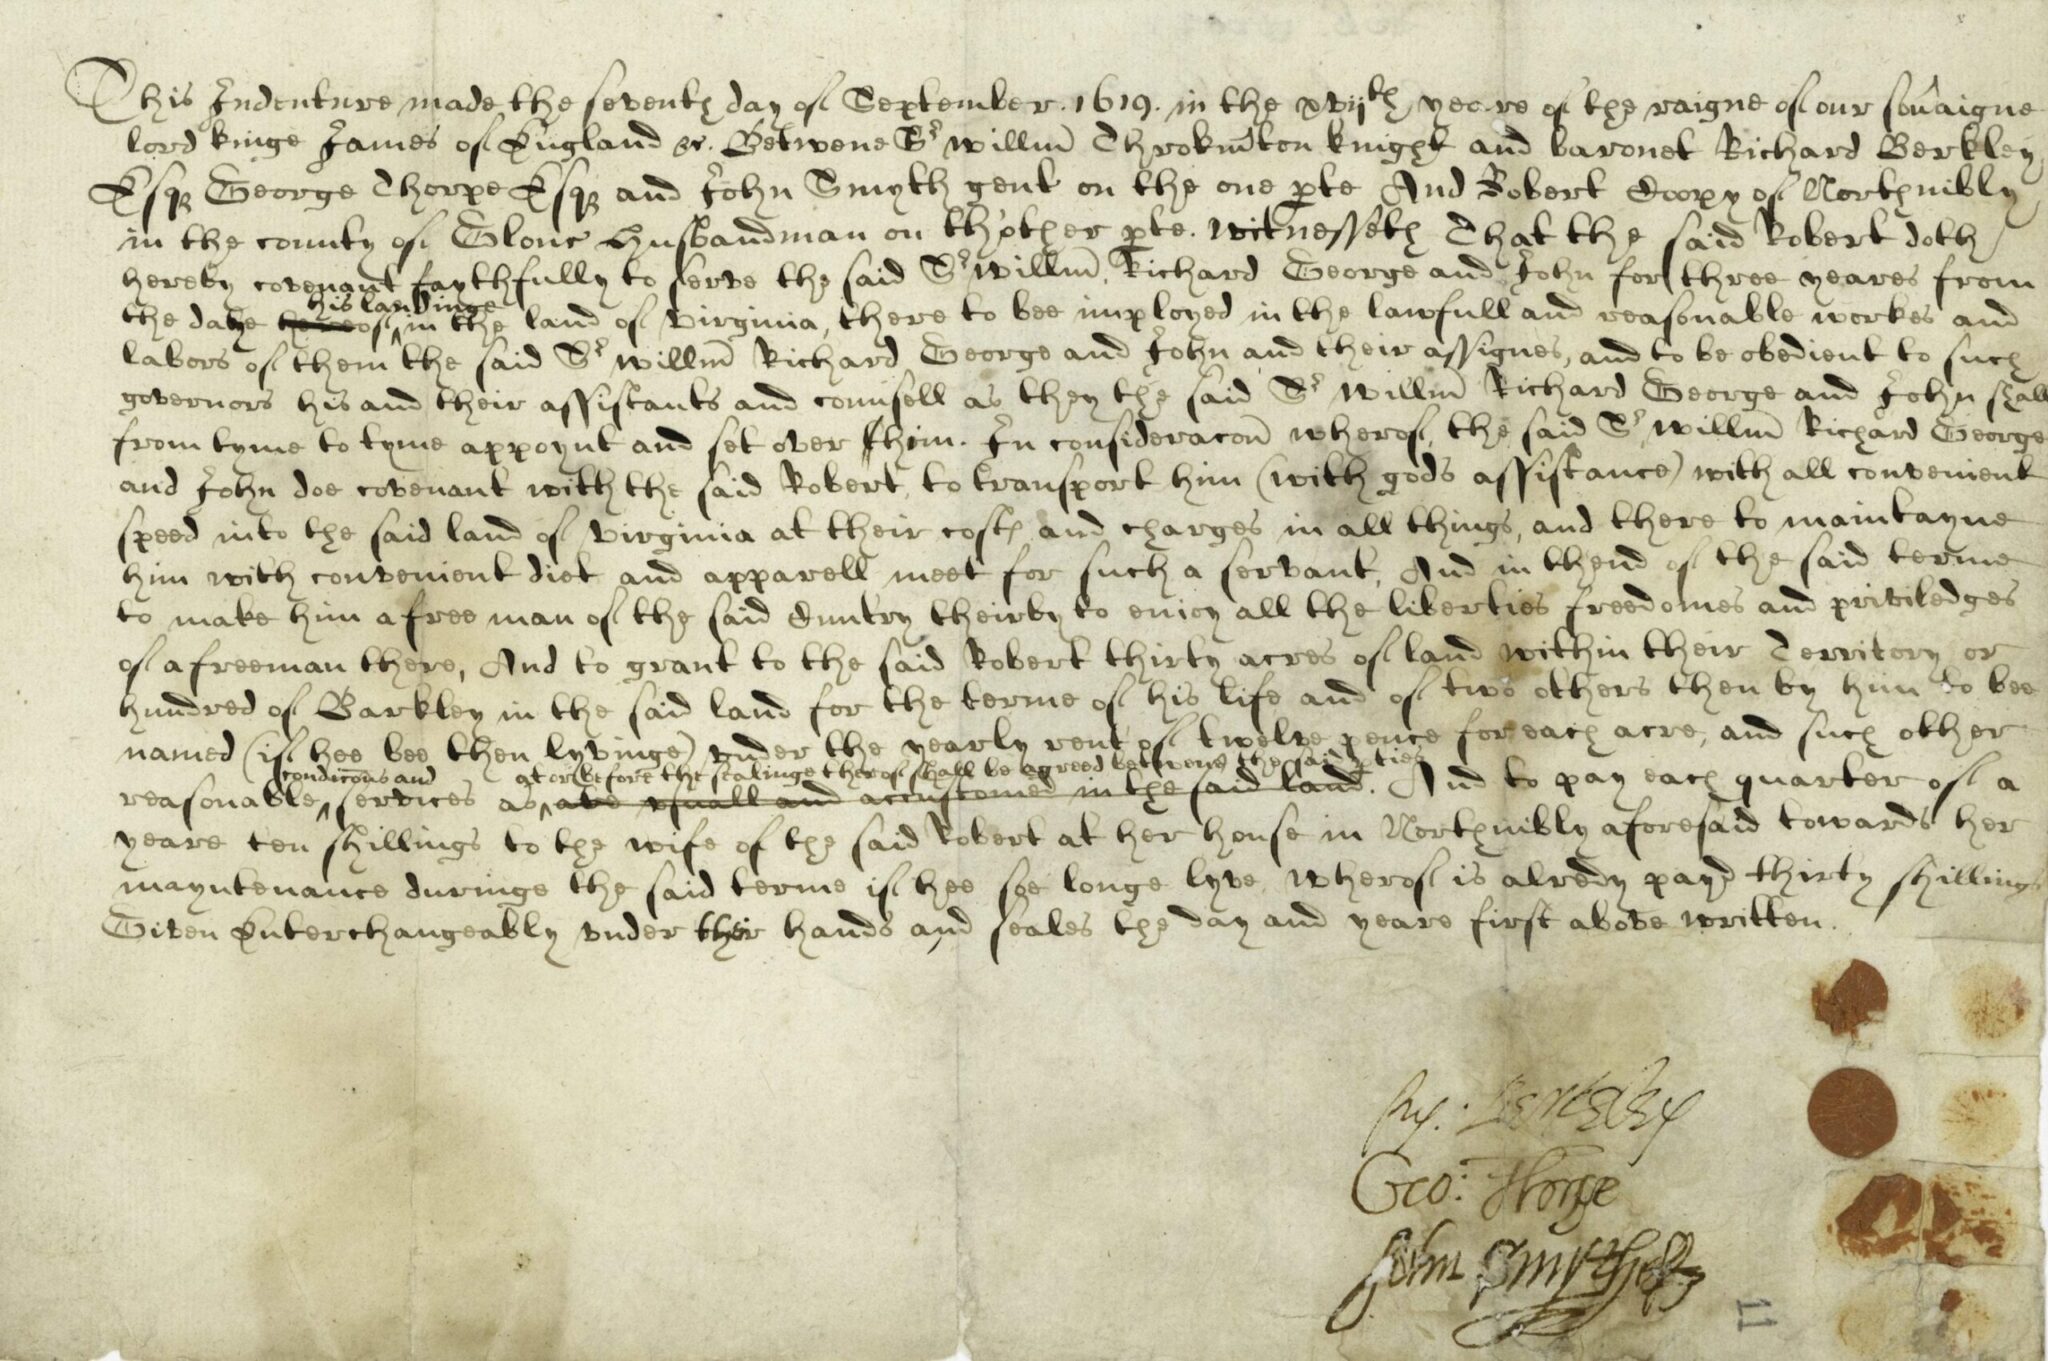 This Indenture made the seventh day of September .1619. in the xvijth yeare of the raigne of our sov̄aigne
lord kinge James of England &c. Betwene Sr Willm̄ Throkm̄ton knight and baronet Richard Berkley
Esqr George Thorpe Esqr and John Smyth gent on the one pte And Robert Coopy of Northnibly
in the county of Glouc husbandman on thother pte. Witnesseth That the said Robert doth
hereby covenant faythfully to serve the said Sr Willm̄, Richard George and John for three yeares from
his landinge
the daye hereof in the land of Virginia, there to bee imployed in the lawfull and reasonable workes and
labors of them the said Sr Willm̄ Richard George and John and their assignes, and to be obedient to such
governors his and their assistants and counsell as they the said Sr Willm̄ Richard George and John shall
from tyme to tyme appoynt and set over him. In consideracon̄ wherof, the said Sr Willm̄ Richard George
and John doe covenant with the said Robert, to transport him (with gods assistance) with all convenient
speed into the said land of Virginia at their costs and charges in all things, and there to maintayne
him with convenient diet and apparell meet for such a servant, And in thend of the said terme
to make him a free man of the said Cuntry theirby to enioy all the liberties freedomes and priviledges
of a freeman there, And to grant to the said Robert thirty acres of land within their Territory or
hundred of Barkley in the said land for the terme of his life and of two others then by him to bee
named (if hee bee then lyvinge) vnder the yearly rent of twelve pence for each acre, and such other
condicōns and at or before the sealinge therof shall be agreed betwene the said pties
reasonable services as are vsuall and accustomed in the said land. And to pay each quarter of a
yeare ten shillings to the wife of the said Robert at her house in Northnibly aforesaid towards her
mayntenance duringe the said terme if hee soe longe lyve, Wherof is alredy payd thirty shillings
Given Enterchangeably vnder their hands and seales the day and yeare first above written.
Ry: Berkeley
Geo: Thorpe
John Smyth
11